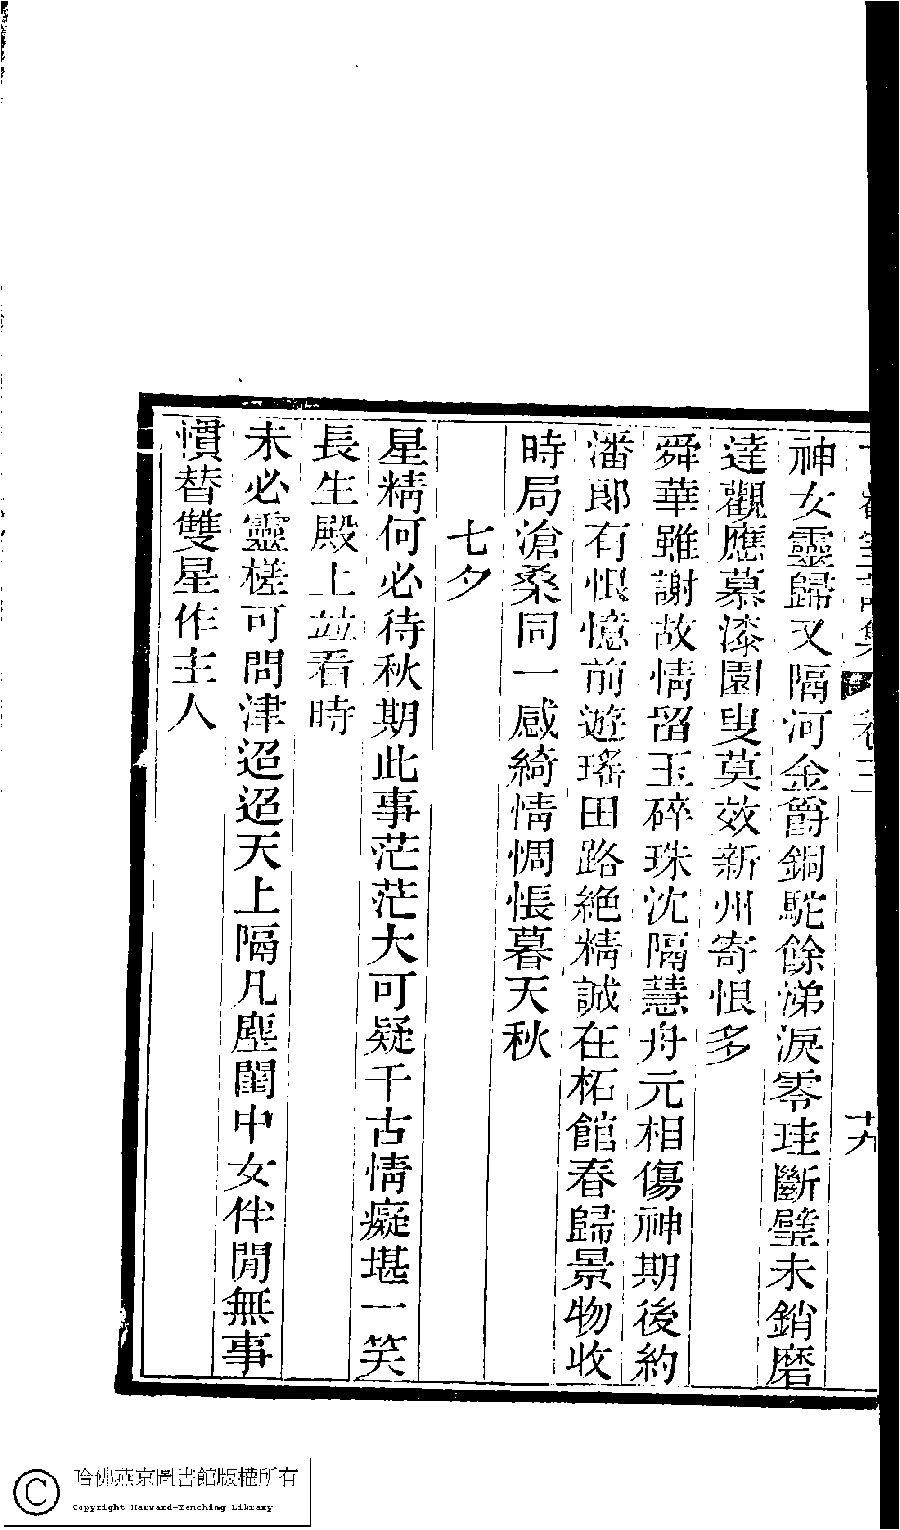 卷三
十九
神女靈歸又隔河金爵銅駝餘涕淚零珪斷璧未銷磨
達觀應慕漆園叟莫效新州寄恨多
舜華雖謝故情留玉碎珠沈隔慧舟元相傷神期後約
潘郎有恨憶前遊瑤田路絶精誠在柘館春歸景物收
時局滄桑同一感綺情惆悵暮天秋
七夕
星精何必待秋期此事茫茫大可疑千古情癡堪一笑
長生殿上竝看時
未必靈槎可問津迢迢天上隔凡塵閨中女伴閒無事
慣替雙星作主人
哈佛燕京圖書館版權所有
Copyright Harvard-Yenching Library